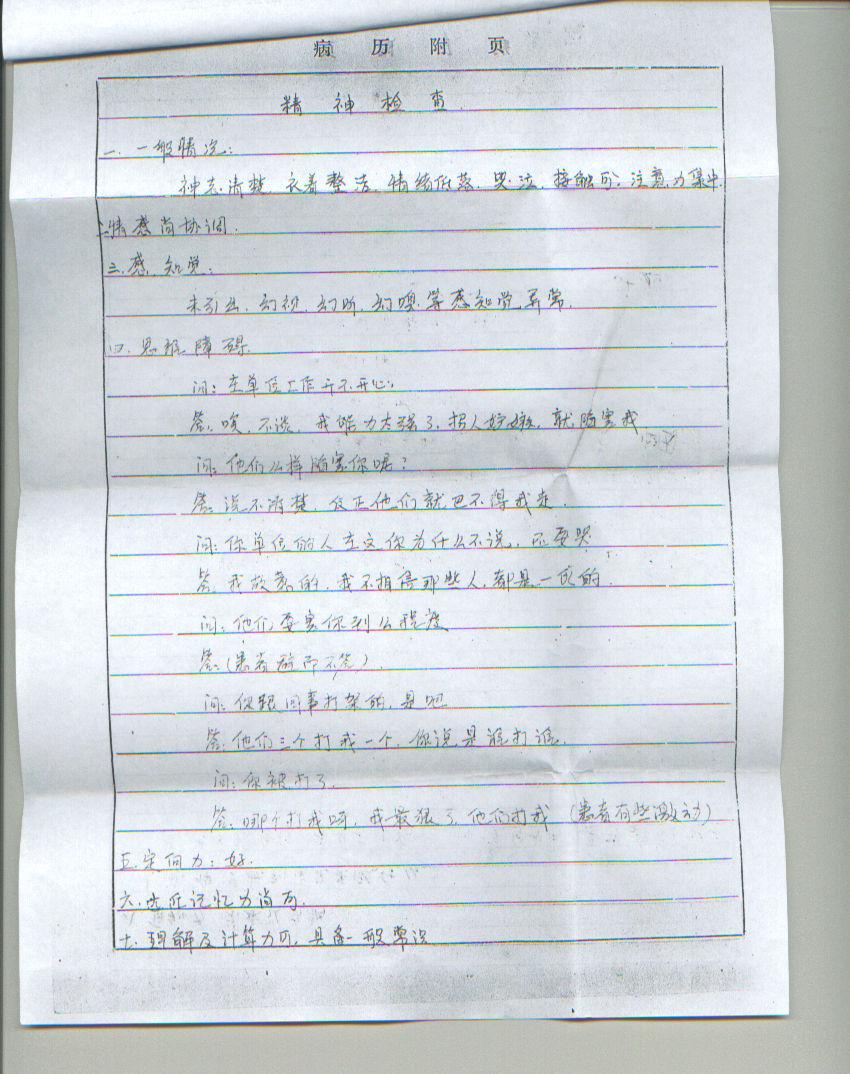 病历附页
精神检查
一.一般情况:
神志清楚.衣着整洁.情绪低落.哭泣.接触可.注意力集中.
二.情感尚协调.
三.感.知觉:
未引出.幻视.幻听.幻嗅等感知觉异常.
四.思维障碍
问:在单位工作开不开心
答.唉.不谈.我能力太强了.招人妒嫉.就陷害我
问:他们么样陷害你呢?
答.说不清楚.反正他们就巴不得我走.
问:你单位的人在这你为什么不说.还要哭
答.我故意的.我不相信那些人.都是一伙的.
问:他们要害你到么程度
答:(患者辟而不答).
问:你跟同事打架的.是吧
答:他们三个打我一个.你说是谁打谁.
问:你被打了.
答.哪个打我呀.我最狠了.他们打我(患者有些激动)
五.定向力:好.
六.远近记忆力尚可.
七.理解及计算力可.具备一般常识